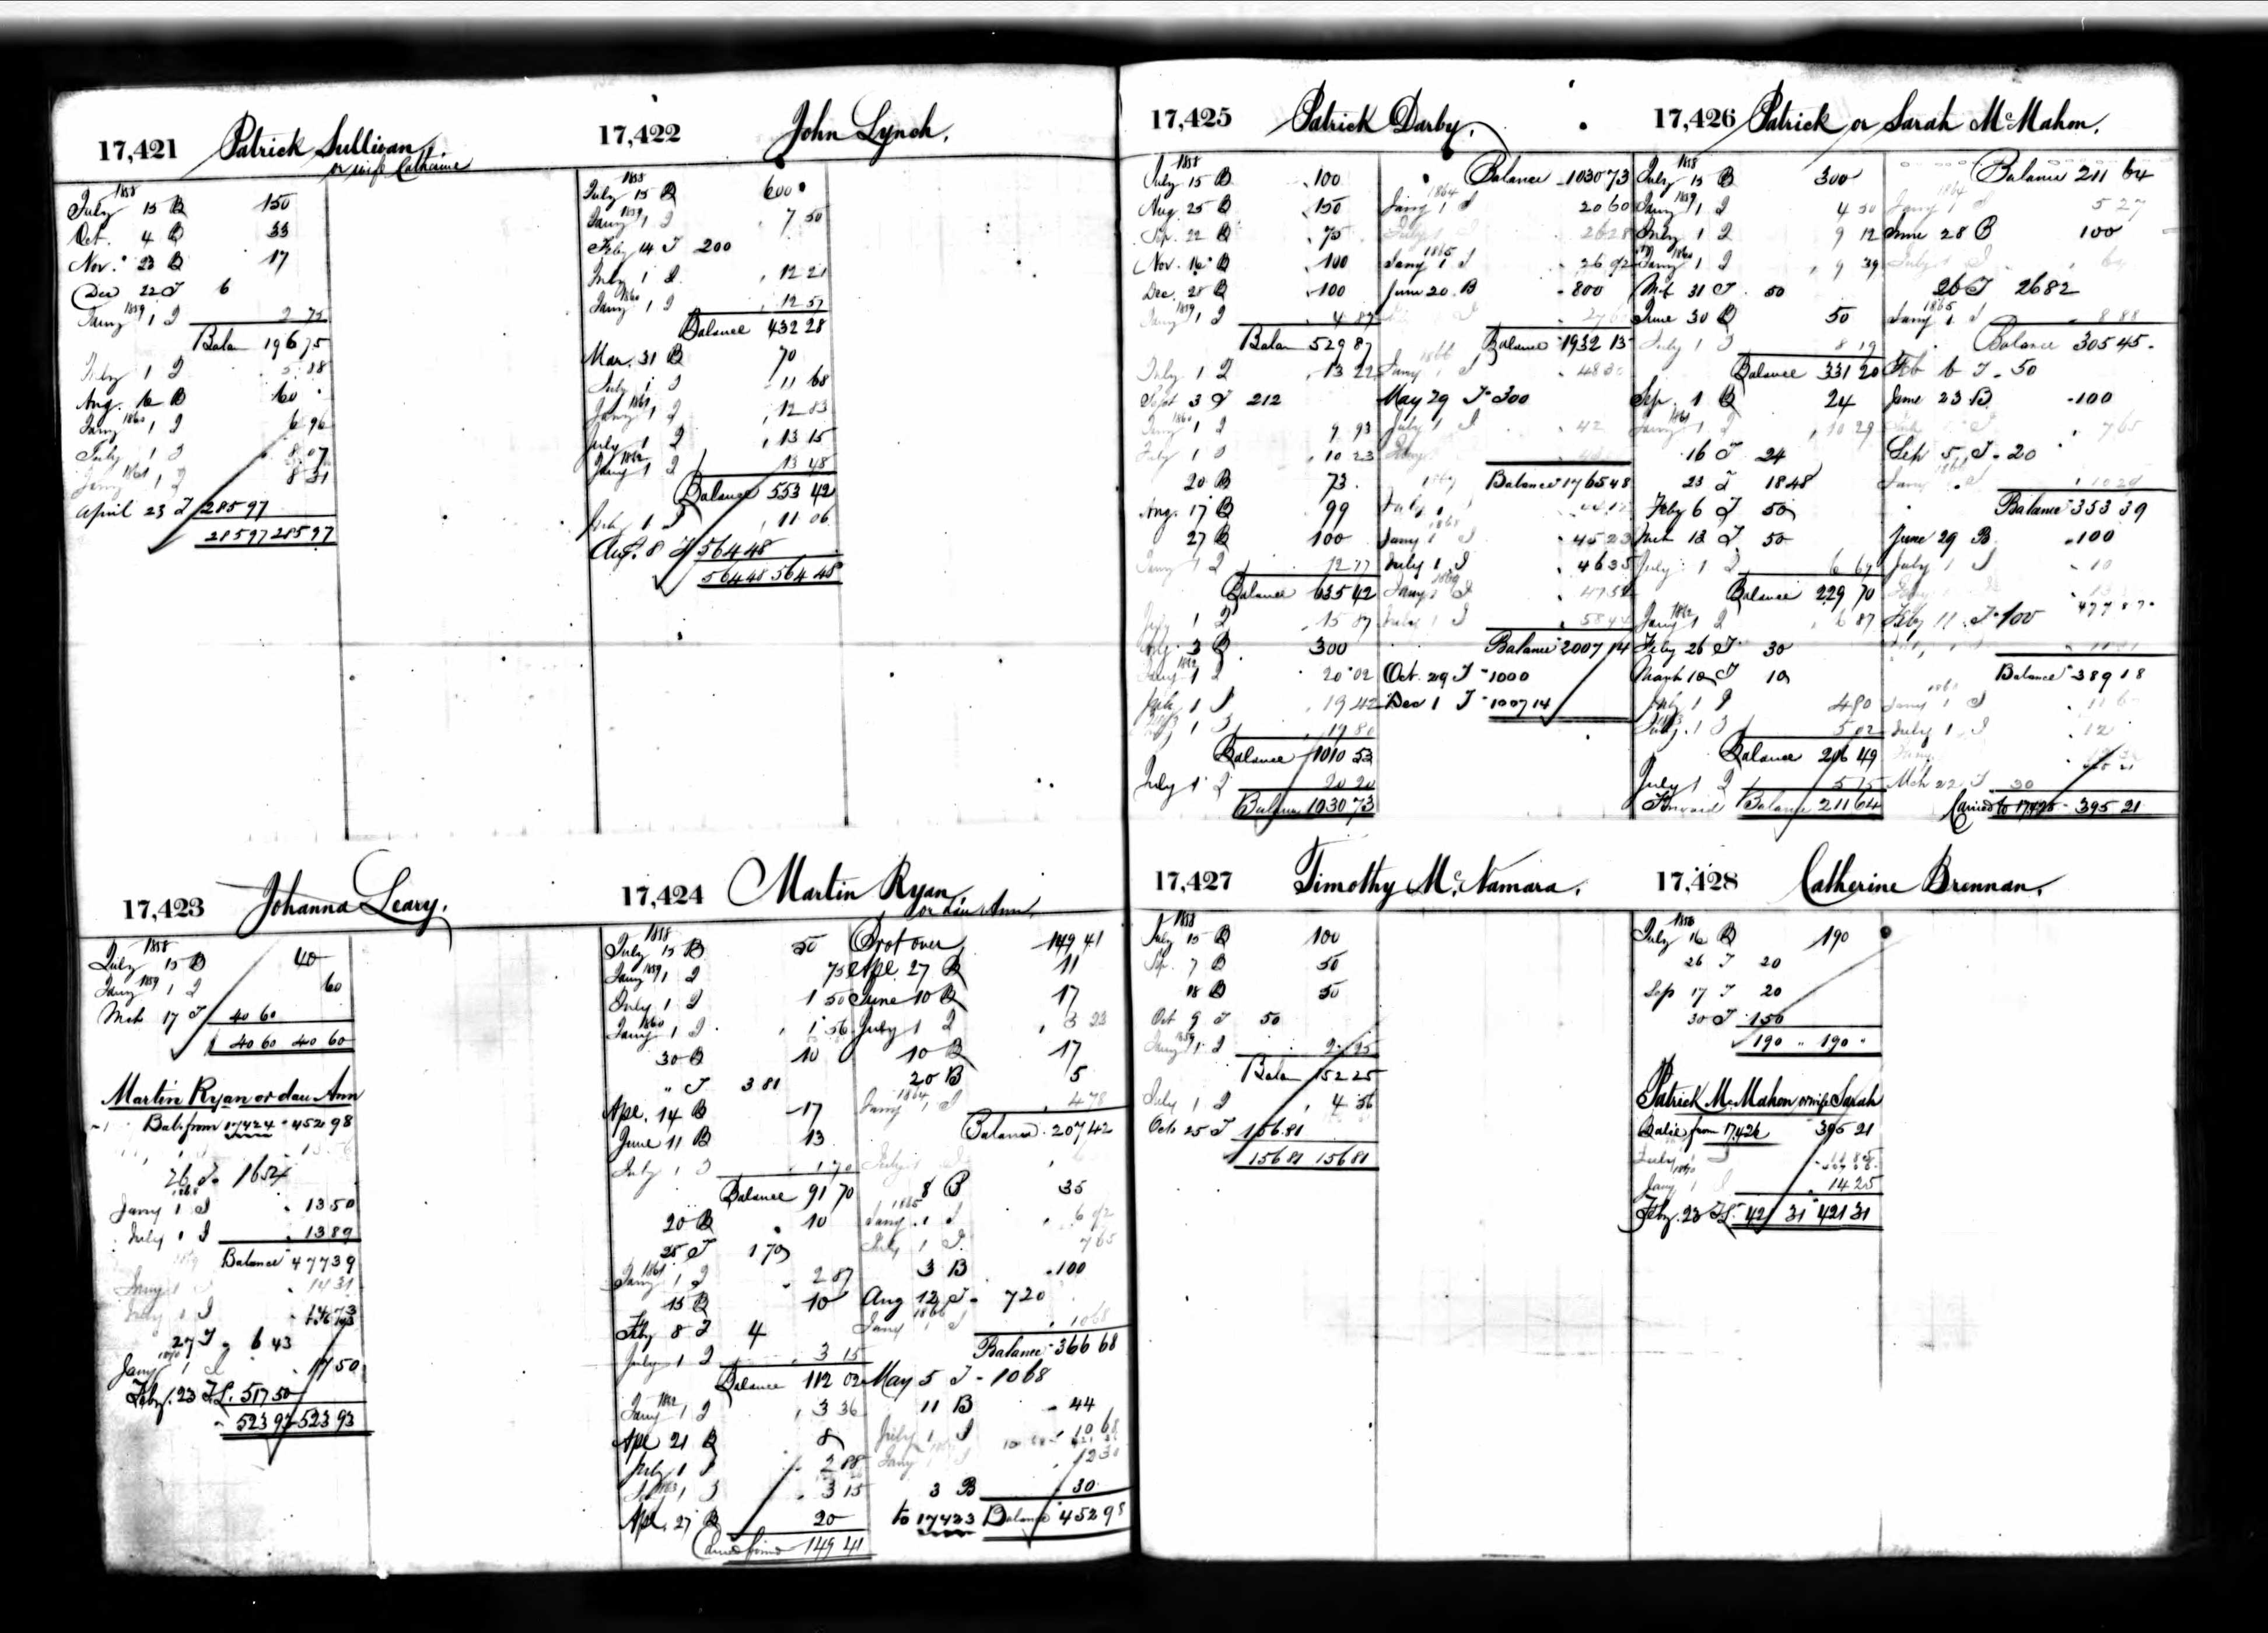 17,421 Patrick Sullivan,
or wife Catharine
1858
July 15 B 150
Oct. 4 B 33
Nov. 23 B 17
Dec 22 T 6
1859
Jany 1 I 2 75
Balan 196 75
July 1 I 5 18
Aug. 16 B 60
1860
Jany 1 I 6 96
July 1 I 8 07
1861
Jany 1 I 8 31
April 23 T 285 97
285 97 285 97
17,422 John Lynch.
1858
July 15 B 600
1859
Jany 1 I 7 50
Feby 14 T 200
July 1 I 12 21
1860
Jany 1 I 12 57
Balance 432 28
Mar. 31 B 70
July 1 I 11 68
1861
Jany 1 I 12 83
July 1 I 13 15
1862
Jany 1 I 13 48
Balance 553 42
July 1 I 11 06
Aug. 8 T 564 48
564 48 564 48
17,423 Johanna Leary.
1858
July 15 B 40
1859
Jany 1 I 60
Mch 17 T 40 60
40 60 40 60
Martin Ryan or dau Ann
Bal. from 17424 452 98
26 T 16 54
1868
Jany 1 I 13 50
July 1 I 13 89
Balance 477 39
Jany 1 I 14 31
July 1 I 14 73
27 T 6 43
1870
Jany 1 I 17 50
Feby. 23 TS. 517 50
523 93 523 93
17,424 Martin Ryan,
or dau Ann.
1858
July 15 B 50
1859
Jany 1 I 75
July 1 I 1 50
1860
Jany 1 I 1 56
30 B 10
" T 3 81
Apl. 14 B 17
June 11 B 13
July 1 I 1 70
Balance 91 70
20 B 10
25 T 1 70
1861
Jany 1 I 2 87
15 B 10
Feby 8 T 4
July 1 I 3 15
Balance 112 02
1862
Jany 1 I 3 36
Apl 21 B 8
July 1 I 2 88
1863
Jany 1 I 3 15
Apl. 27 B 20
Carried forward 149 41
Brot over 149 41
Apl 27 B 11
June 10 B 17
July 1 I 3 23
10 B 17
20 B 5
1864
Jany 1 I 4 78
Balance 207 42
July 1 I
8 B 35
1865
Jany 1 I 6 92
July 1 I 7 65
3 B 100
Aug 12 T 7 20
1866
Jany 1 I 10 68
Balance 366 68
May 5 T 10 68
11 B 44
July 1 I 10 68
Jany 1 I 12 30
3 B 30
to 17423 Balance 452 98
17,425 Patrick Darby,
1858
July 15 B 100
Aug. 25 B 150
Sep. 22 B 75
Nov. 16 B 100
Dec. 28 B 100
1859
Jany 1 I 4 87
Balan 529 87
July 1 I 13 22
Sept 3 T 212
1860
Jany 1 I 9 93
July 1 I 10 23
20 B 73
Aug. 17 B 99
27 B 100
Jany 1 I 12 77
Balance 635 42
July 1 I 15 87
Aug. 3 B 300
1862
Jany 1 I 20 02
July 1 I 19 42
Jany 1 I 19 80
Balance 1010 53
July 1 I 20 20
Balance 1030 73
Balance 1030 73
1864
Jany 1 I 20 60
July 1 I 26 28
1865
Jany 1 I 26 92
June 20 B 800
Balance 1932 13
1866
Jany 1 I 48 30
May 29 T 300
July 1 I 42
Balance 1765 48
1867
July 1 I 44 12
1868
Jany 1 I 45 23
July 1 I 46 35
1869
Jany 1 I 47 52
July 1 I 58 44
Balance 2007 14
Oct. 29 T 1000
Dec 1 T 1007 14
17,426 Patrick or Sarah McMahon.
1858
July 15 B 300
1859
Jany 1 I 4 50
July 1 I 9 12
1860
Jany 1 I 9 39
Mch 31 T 50
June 30 B 50
July 1 I 8 19
Balance 331 20
Sep. 1 B 24
1861
Jany 1 I 10 29
16 T 24
23 T 18 48
Feby 6 T 50
Mch 12 T 50
July 1 I 6 69
Balance 229 70
1862
Jany 1 I 6 87
Feby 26 T 30
March 10 T 10
July 1 I 4 90
Jany 1 I 5 02
Balance 206 49
July 1 I 5 15
Forward Balance 211 64
Balance 211 64
1864
Jany 1 I 5 27
June 28 B 100
July 1 I
26 T 26 82
1865
Jany 1 I 8 88
Balance 305 45
Feb 6 T 50
June 23 B 100
July 1 I 7 65
Sep 5 T 20
1866
Jany 1 I 10 29
Balance 353 39
June 29 B 100
July 1 I 10
Feby 11 T 100
Balance 389 18
1868
Jany 1 I 11 6
July 1 I 12
Mch 22 T 30
Carried to 17428 395 21
17,427 Timothy McNamara.
1858
July 15 B 100
Sep. 7 B 50
18 B 50
Oct 9 T 50
1859
Jany 1 I 2 25
Balan 152 25
July 1 I 4 56
Octo 25 T 156 81
156 81 156 81
17,428 Catherine Brennan.
1858
July 16 B 190
26 T 20
Sep 17 T 20
30 T 150
190 " 190 "
Patrick McMahon or wife Sarah
Balce from 17,426 395 21
July 1 I 11 85
1870
Jany 1 I 14 25
Feby. 23 TS. 421 31 421 31